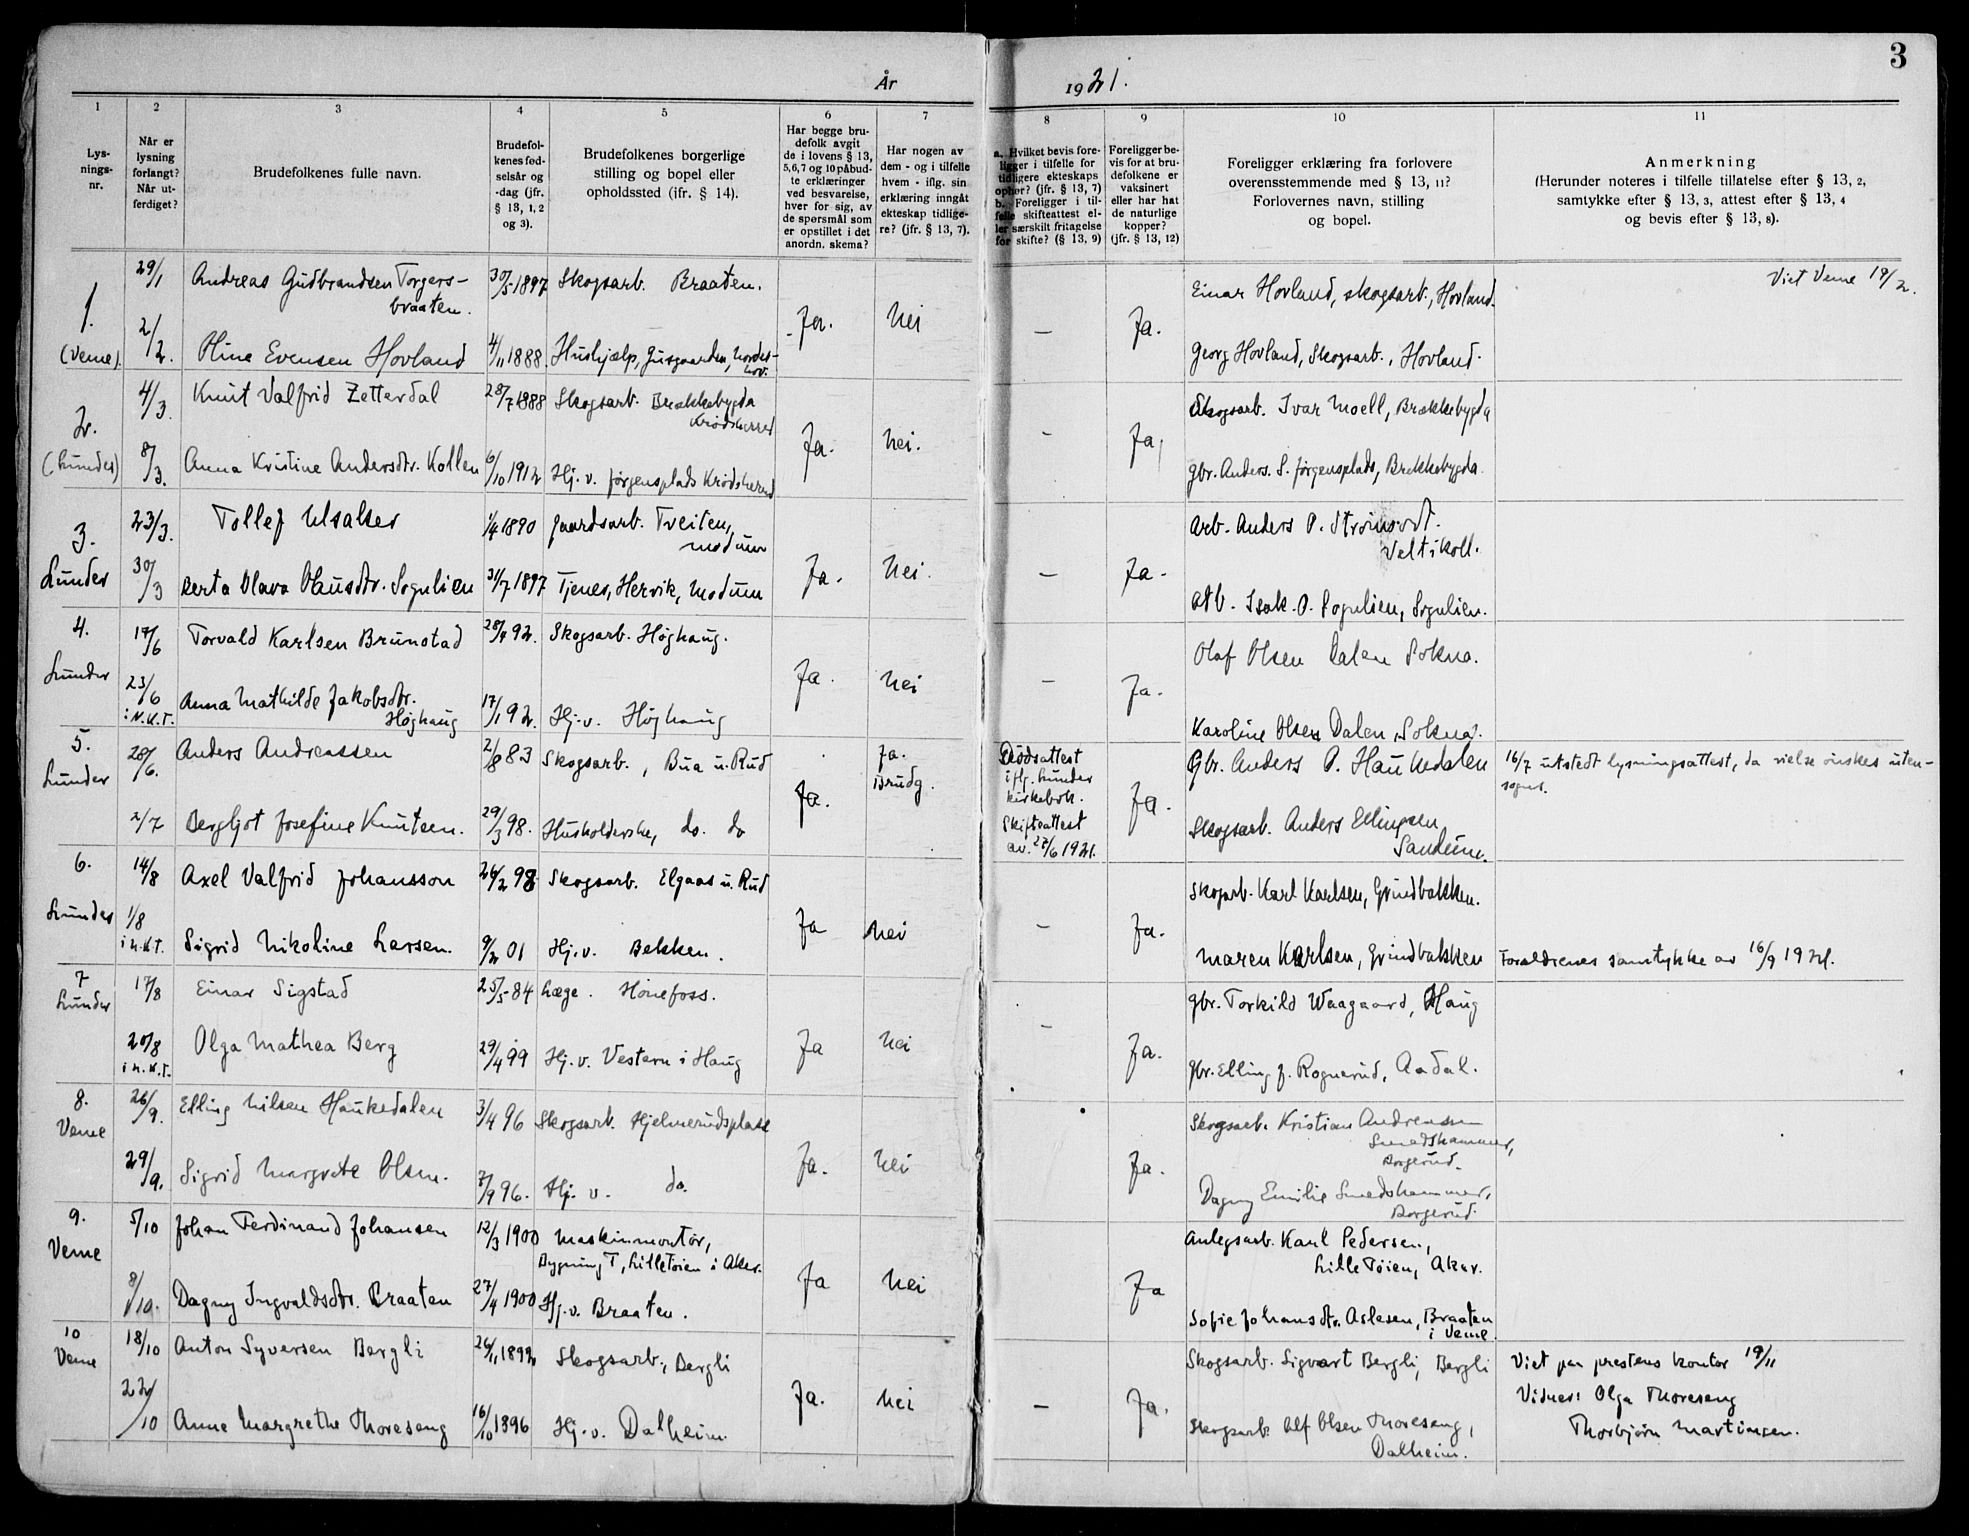 År 1921.
3
1 2 3 4 5 6 7 8 9 10 11
Lysningsnr.
Når er lysning forlangt? Når utferdiget?
Brudefolkenes fulle navn.
Brudefolkenes fødselsår og -dag (jfr. § 13, 1, 2 og 3).
Brudefolkenes borgerlige stilling og bopel eller opholdssted (ifr. § 14).
Har begge brudefolk avgit de i lovens § 13, 5,6,7 og 10 påbudte erklæringer ved besvarelse, hver for sig, av de spørsmål som er opstillet i det anordn. skema?
Har nogen av dem - og i tilfelle hvem - iflg. sin erklæring inngåt ekteskap tidligere? (jfr. § 13, 7).
a. Hvilket bevis foreligger i tilfelle for tidligere ekteskaps ophør? (jfr. § 13, 7) b. Foreligger i tilfelle skifteattest eller særskilt fritagelse for skifte? (§ 13, 9)
Foreligger bevis for at brudefolkene er vaksinert eller har hat de naturlige kopper? (jfr. § 13, 12)
Foreligger erklæring fra forlovere overensstemmende med § 13, 11? Forlovernes navn, stilling og bopel.
Anmerkning (Herunder noteres i tilfelle tillatelse efter § 13, 2, samtykke efter § 13, 3, attest efter § 13, 4 og bevis efter § 13, 8).
1. (Veme). 29/1 Andreas Gudbrandsen Torgersbraaten. 30/5 1897 Skogsarb. Braaten. Ja. Nei — Ja. Einar Hovland, skogsarb., Hovland. Viet Veme 19/2.
2/2. Oline Evensen Hovland 4/11 1888. Hushjælp, Gusgaarden, Norderhov. Georg Hovland, Skogsarb., Hovland.
2. (Lunder) 4/3. Knut Valfrid Zetterdal 28/7 1888 Skogsarb. Brækkebygda Krødsherred Ja. Nei. — Ja, Skogsarb. Ivar Moell, Brækkebygda
8/3. Anna Kristine Andersdtr. Kollen 6/10 1912 Hj. v. Jørgensplads Krødsherred gbr. Anders. S. Jørgensplads, Brekkebygda.
3. Lunder 23/3. Tollef Ulsaker 1/4 1890 Gaardsarb. Tveiten, Modum Ja. Nei. — Ja. Arb. Anders P. Strømsodt. Veltikoll.
30/3 Berta Olava Olausdtr. Sogulien 31/7 1897 Tjenes, Hervik, Modum Arb. Isak. O. Sogulien, Sogulien.
4. Lunder 17/6 Torvald Karlsen Brunstad 28/4 92. Skogsarb. Høghaug. Ja. Nei — Ja. Olaf Olsen Dalen Sokna.
23/6 i N.K.T. Anna Mathilde Jakobsdtr. Høghaug 17/1 92. Hj. v. Høghaug Karoline Olsen Dalen, Sokna.
5. Lunder 28/6. Anders Andreassen 2/8 83 Skogsarb., Bua u. Rud Ja. Ja. Brudg. Dødsattest iflg. Lunder kirkebok. Skifteattest av. 27/6 1921. Ja. Gbr. Anders P. Haukedalen 16/7 utstedt lysningsattest, da vielse ønskes utensogns.
2/7 Bergljot Josefine Knutsen. 29/3 98. Husholderske, do. do Skogsarb. Anders Ellingsen Sandum.
6. Lunder 14/8 Axel Valfrid Johansson 24/2 98 Skogsarb. Elgaas u. Rud Ja Nei — Ja. Skogarb. Karl Karlsen, Grindbakken.
1/8 i N.K.T. Sigrid Nikoline Larsen. 9/2 01 Hj. v. Bekken. Maren Karlsen, Grindbakken Forældrenes samtykke av 16/9 1921.
7 Lunder 17/8 Einar Sigstad 25/5 84 Læge. Hønefoss. Ja Nei — Ja. gbr. Torkild Waagaard, Haug
20/8 i N.K.T. Olga Mathea Berg 29/4 99 Hj. v. Vestern i Haug gbr. Elling J. Rognerud, Aadal.
8. Veme 26/9. Elling Nilsen Haukedalen 3/4 96 Skogsarb. Hjelmerudsplass Ja. Nei Ja. Skogsarb. Kristian Andreassen Smedshammer, Borgerud.
29/9. Sigrid Margrete Olsen. 7/9 96. Hj. v. do. Dagny Emilie Smedshammer, Borgerud.
9. Veme 5/10 Johan Ferdinand Johansen 12/3 1900 Maskinmontør, Bygning T, Lilletøien i Aker. Ja Nei Ja Anlegsarb. Karl Pedersen, Lille Tøien, Aker.
8/10. Dagny Ingvaldsdtr. Braaten 27/4 1900 Hj. v. Braaten. Sofie Johansdtr. Aslesen, Braaten i Veme
10 Veme 18/10 Anton Syversen Bergli 26/11 1892 Skogsarb., Bergli Ja. Nei — Ja. Skogsarb. Sigvart Bergli, Bergli Viet paa prestens kontor 19/11
22/10 Anne Margrethe Thoreseng 16/10 1896 Hj. v. Dalheim. Skogsarb. Olf Olsen Thoreseng, Dalheim. Vidner: Olga Thoreseng Thorbjørn Martinsen.